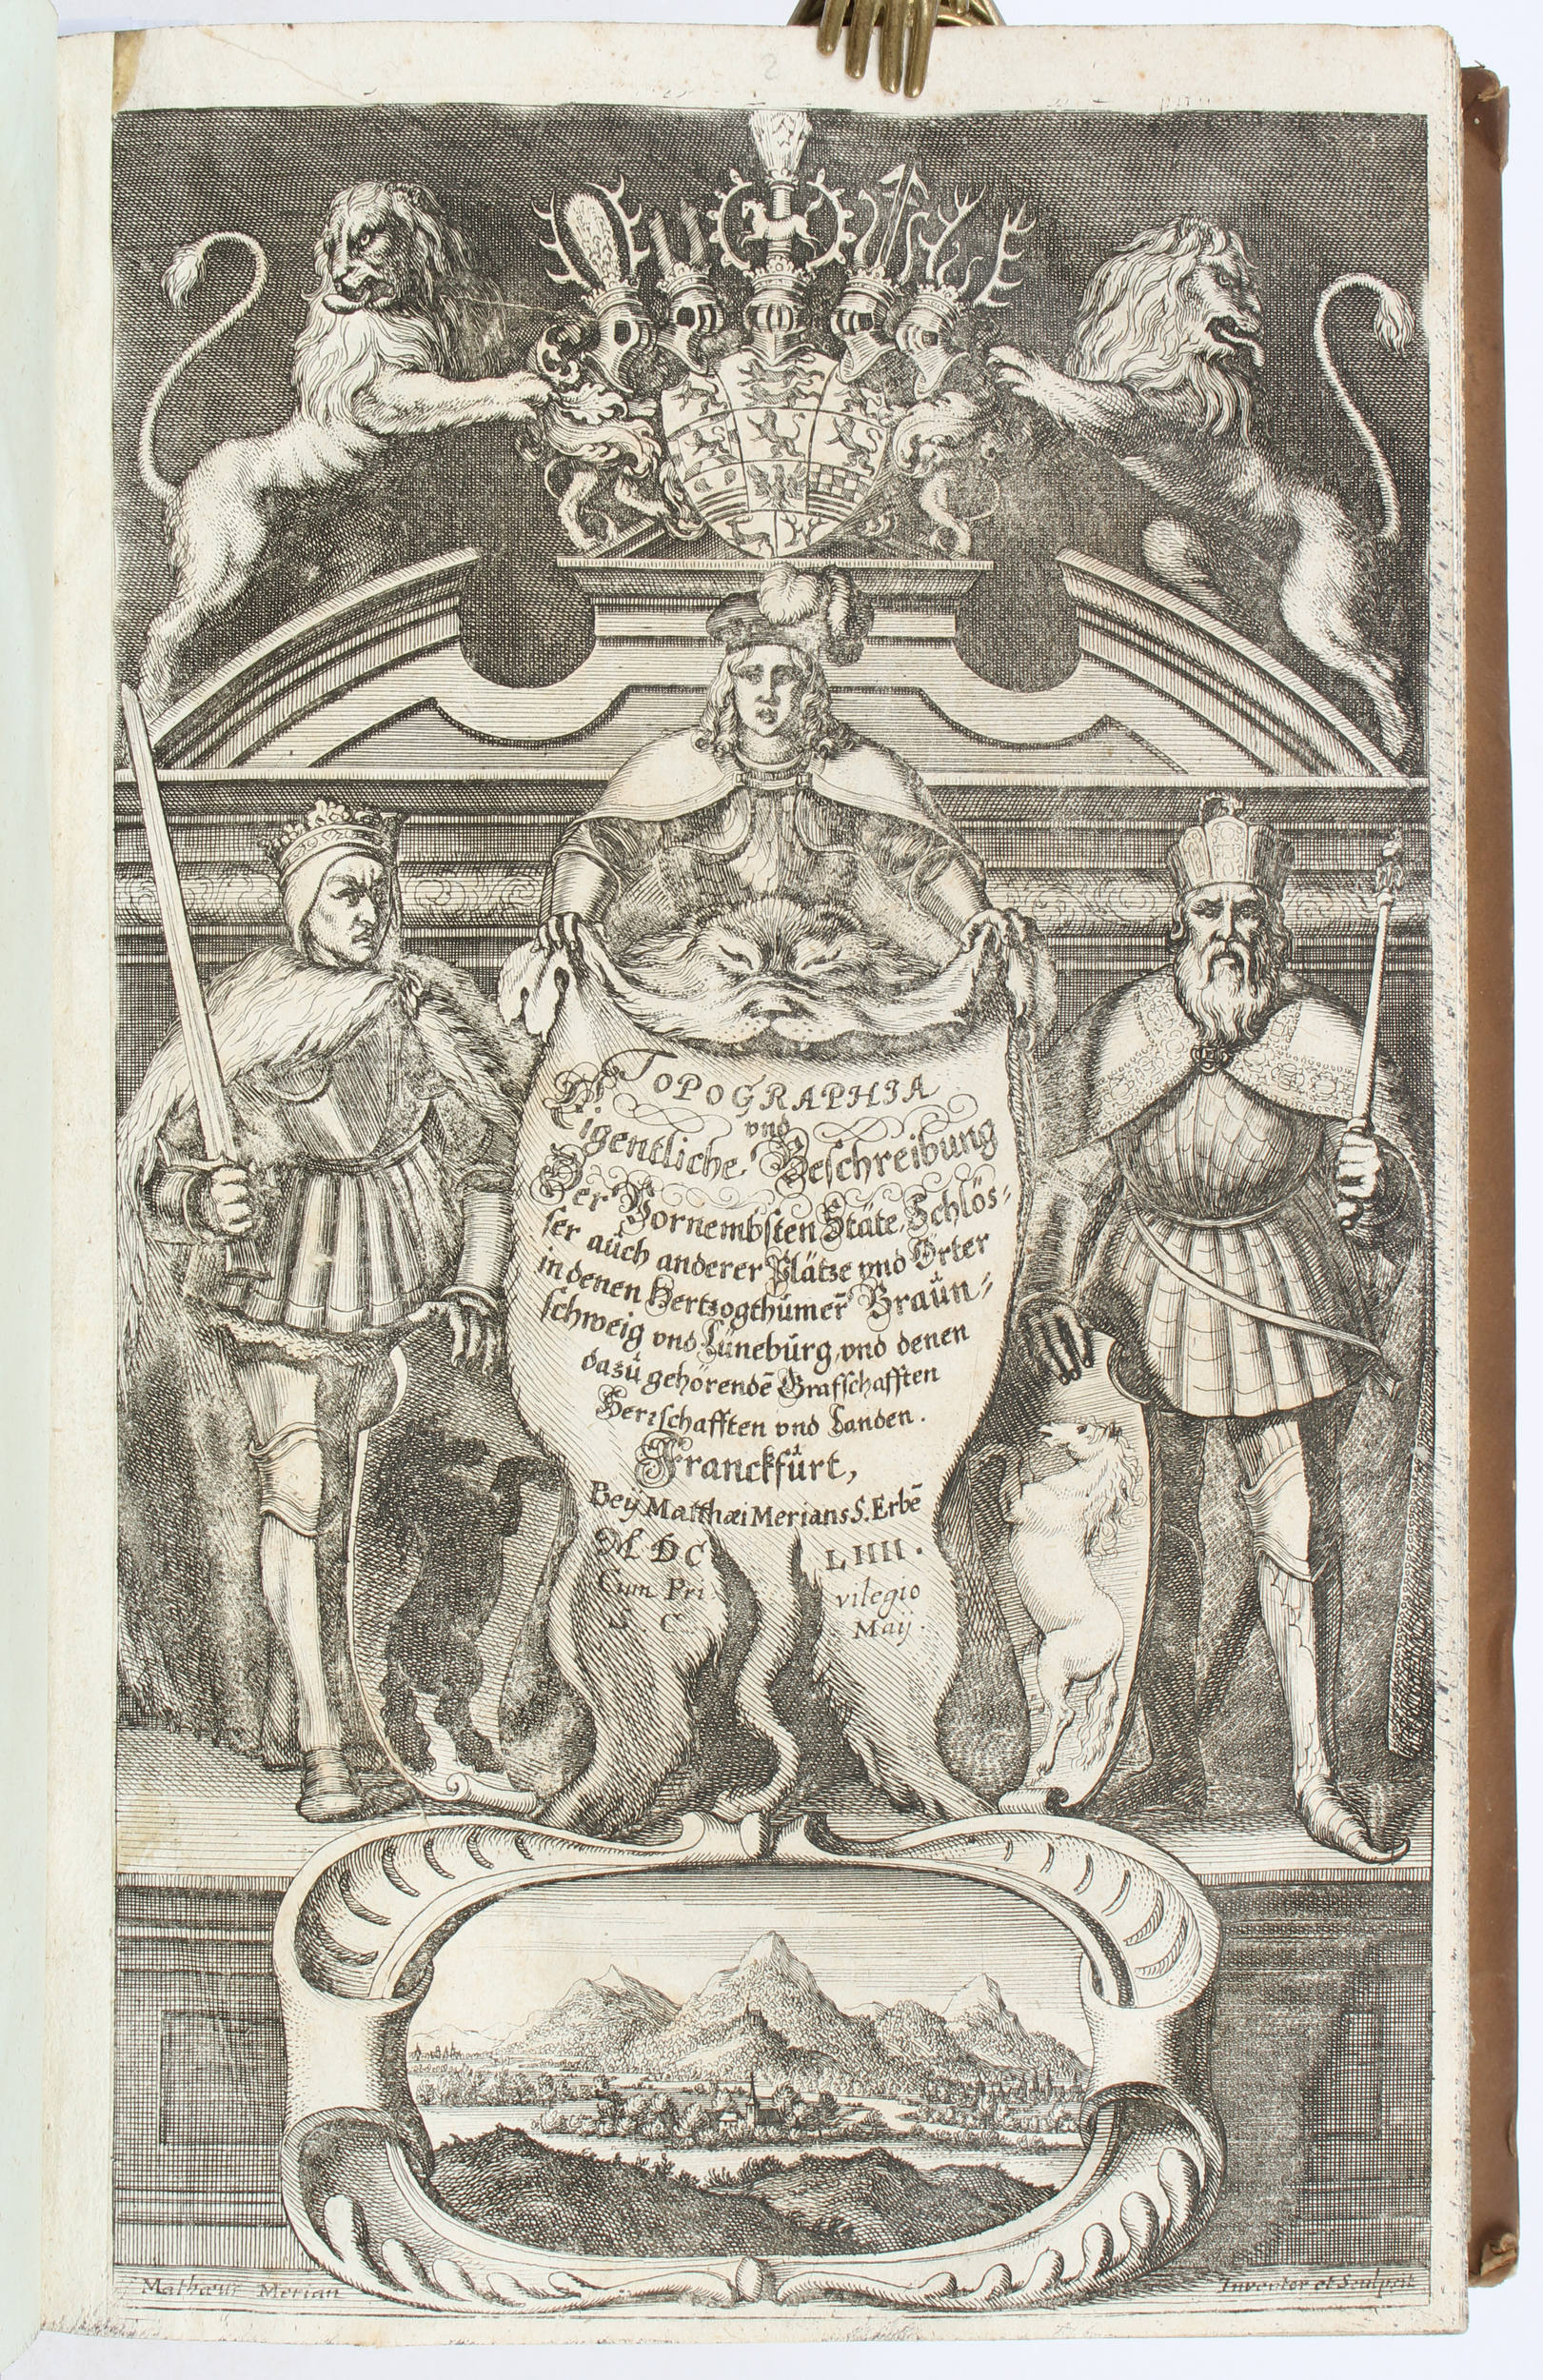 TOPOGRAPHIA
vnd
Eigentliche Beschreibung
Der Vornembsten Stäte, Schlös-
ser auch anderer Plätze vnd Örter
in denen Hertzogthümer̄ Braun-
schweig vnd Lüneburg, vnd denen
dazu gehörendē Grafschafften
Herrschafften vnd Landen.
Franckfurt,
Beÿ Matthæi Merians S. Erbē
MDC LIIII.
Cum Pri vilegio
S. C. Maij.
Mathæus Merian Inventor et Sculpsit